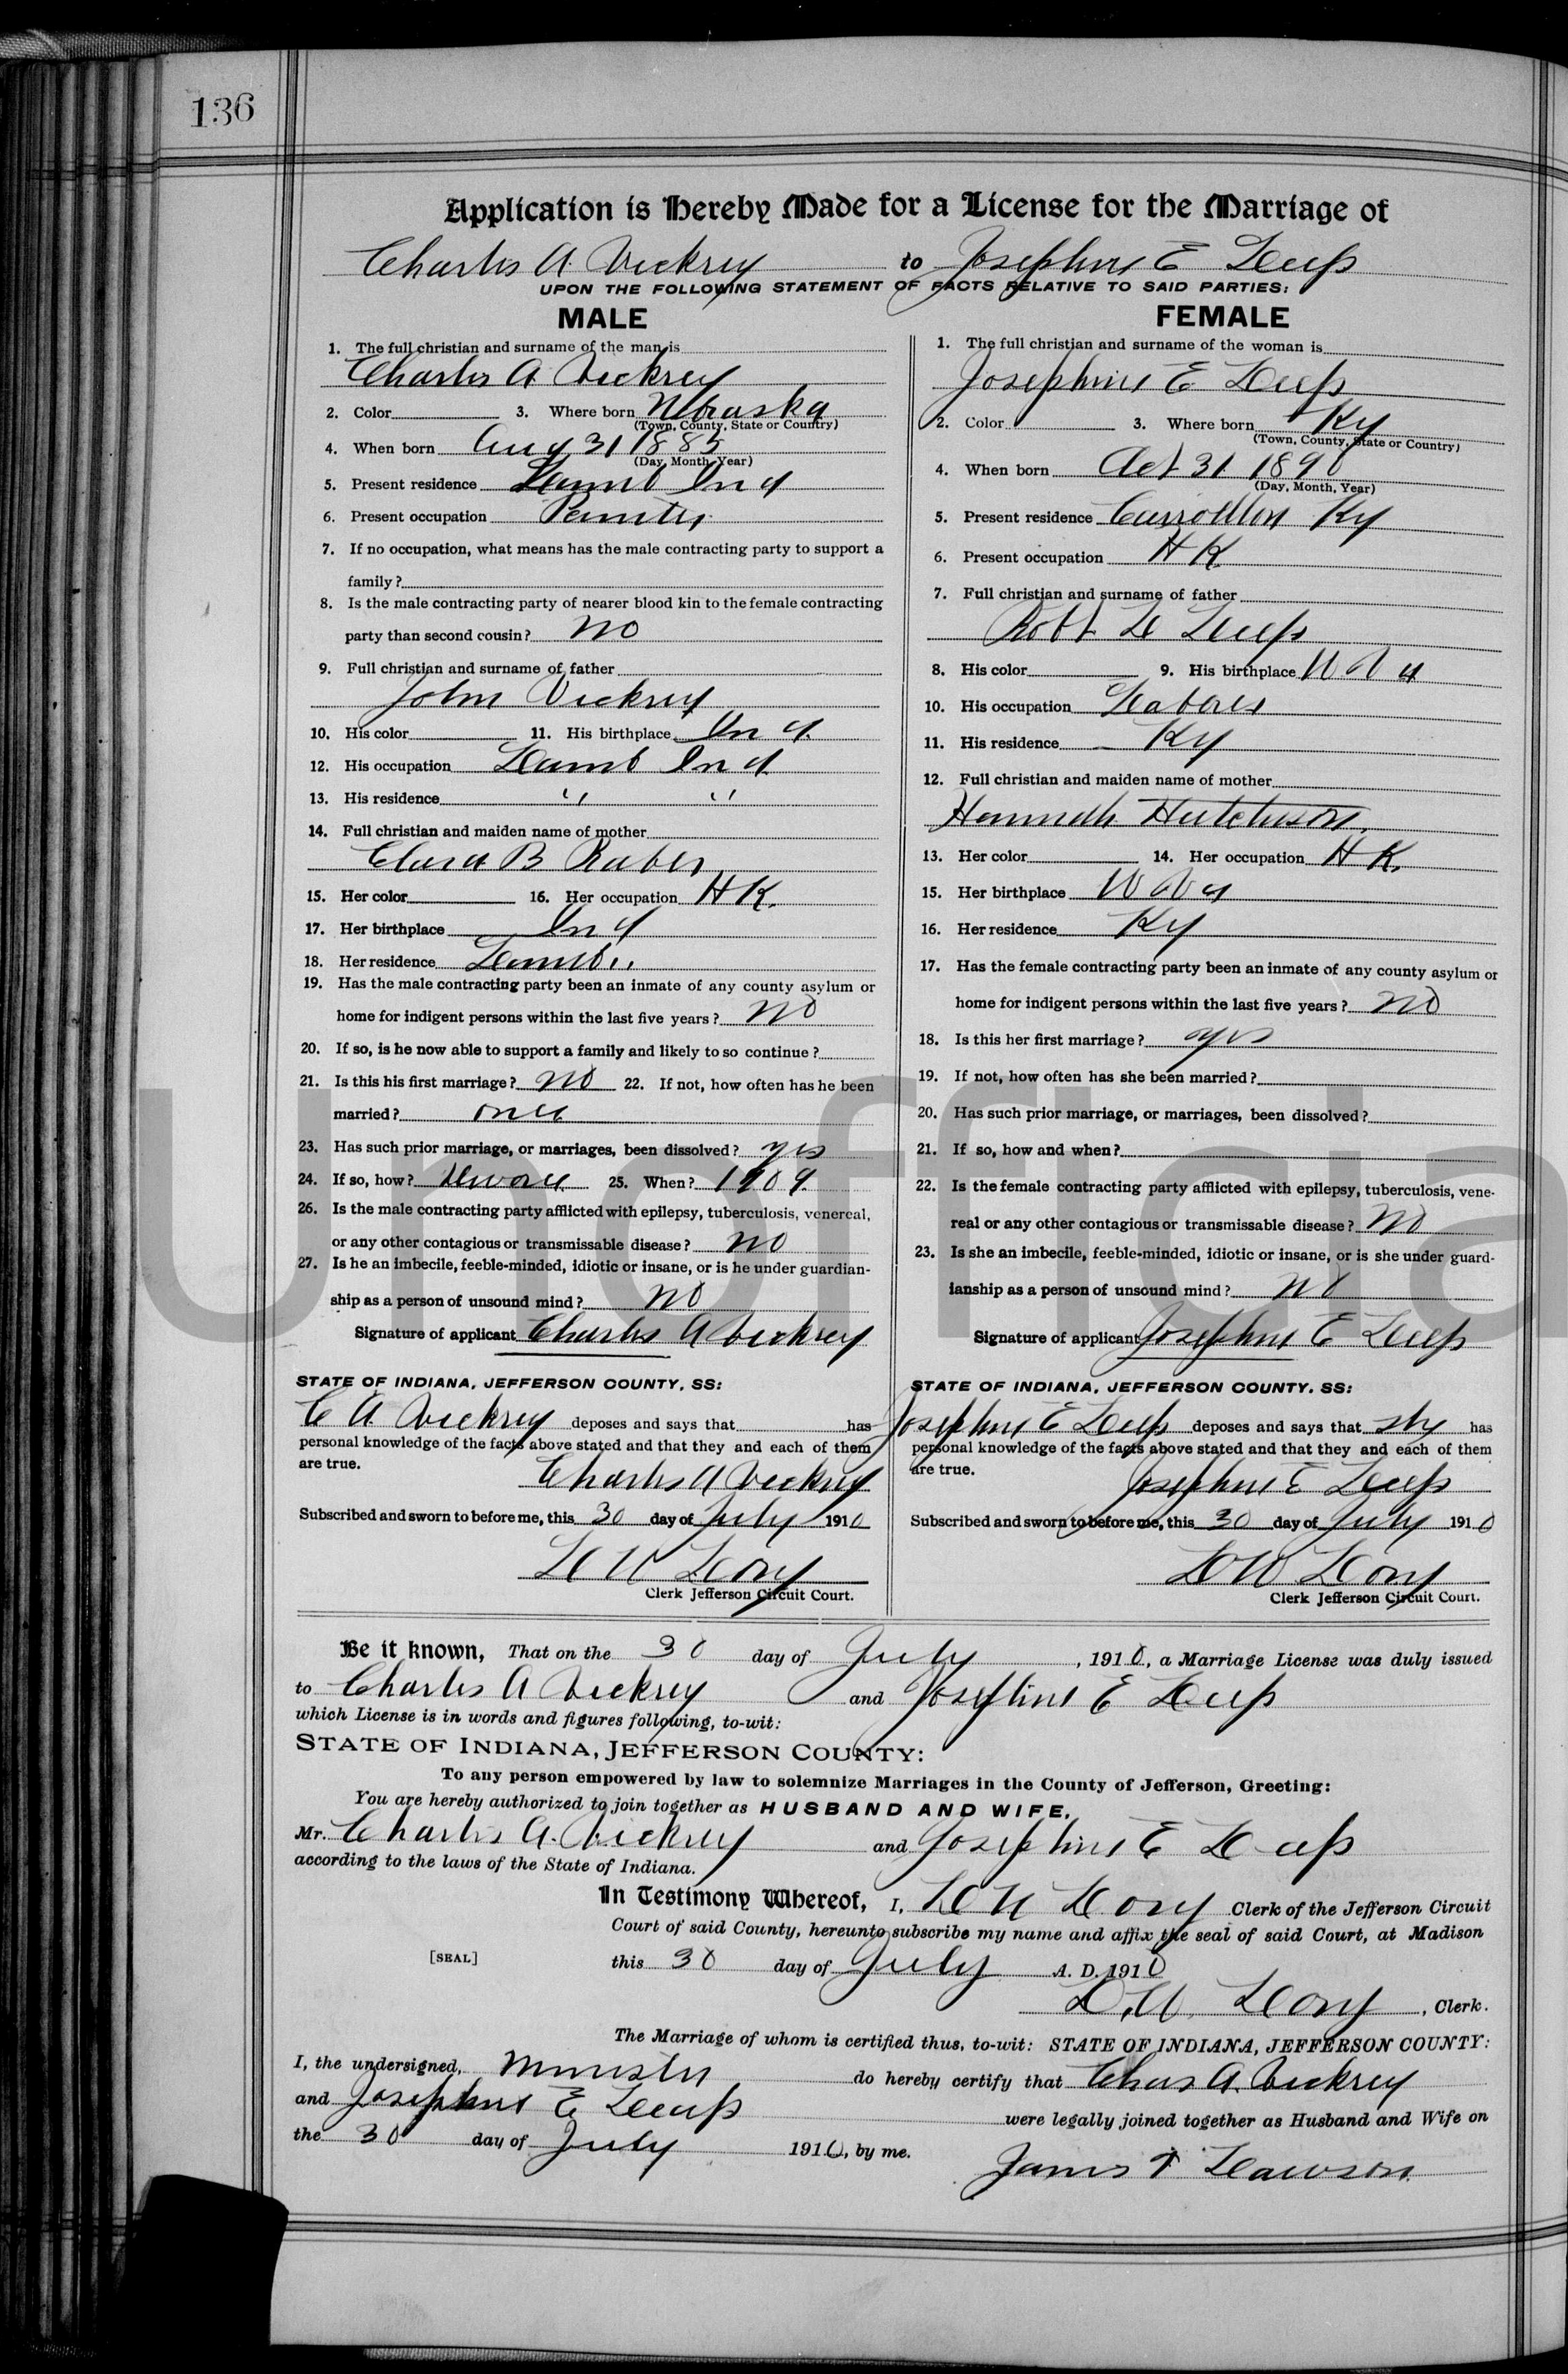 136
Application is Hereby Made for a License for the Marriage of
Charles A. Vickrey to Josephine E Leep
UPON THE FOLLOWING STATEMENT OF FACTS RELATIVE TO SAID PARTIES:
MALE
1. The full christian and surname of the man is
Charles A Vickrey
2. Color 3. Where born Nebraska
(Town, County, State or Country)
4. When born Aug 31 1885
(Day, Month, Year)
5. Present residence Lamb Ind
6. Present occupation
7. If no occupation, what means has the male contracting party to support a
family?
8. Is the male contracting party of nearer blood kin to the female contracting
party than second cousin? no
9. Full christian and surname of father
John Vickrey
10. His color 11. His birthplace Ind.
12. His occupation Lamb Ind
13. His residence " "
14. Full christian and maiden name of mother
Clara B Raber
15. Her color 16. Her occupation HK.
17. Her birthplace Ind
18. Her residence Lamb "
19. Has the male contracting party been an inmate of any county asylum or
home for indigent persons within the last five years? no
20. If so, is he now able to support a family and likely to so continue?
21. Is this his first marriage? no 22. If not, how often has he been
married? once
23. Has such prior marriage, or marriages, been dissolved? yes
24. If so, how? Divorce 25. When? 1909.
26. Is the male contracting party afflicted with epilepsy, tuberculosis, venereal,
or any other contagious or transmissable disease? no
27. Is he an imbecile, feeble-minded, idiotic or insane, or is he under guardian-
ship as a person of unsound mind? no
Signature of applicant Charles A Vickrey
STATE OF INDIANA, JEFFERSON COUNTY, SS:
C A Vickrey deposes and says that has
personal knowledge of the facts above stated and that they and each of them
are true.
Charles A Vickrey
Subscribed and sworn to before me, this 30 day of July 1910
Clerk Jefferson Circuit Court.
FEMALE
1. The full christian and surname of the woman is
Josephine E Leep
2. Color 3. Where born Ky
(Town, County, State or Country)
4. When born Oct 31 1890
(Day, Month, Year)
5. Present residence Carrollton Ky
6. Present occupation HK
7. Full christian and surname of father
Robt L Leep
8. His color 9. His birthplace W Va
10. His occupation Laborer
11. His residence Ky
12. Full christian and maiden name of mother
Hannah Hutchison.
13. Her color 14. Her occupation HK.
15. Her birthplace W Va
16. Her residence Ky
17. Has the female contracting party been an inmate of any county asylum or
home for indigent persons within the last five years? no
18. Is this her first marriage? yes
19. If not, how often has she been married?
20. Has such prior marriage, or marriages, been dissolved?
21. If so, how and when?
22. Is the female contracting party afflicted with epilepsy, tuberculosis, vene-
real or any other contagious or transmissable disease? no
23. Is she an imbecile, feeble-minded, idiotic or insane, or is she under guard-
ianship as a person of unsound mind? no
Signature of applicant Josephine E Leep
STATE OF INDIANA, JEFFERSON COUNTY. SS:
Josephine E Leep deposes and says that she has
personal knowledge of the facts above stated and that they and each of them
are true.
Josephine E Leep
Subscribed and sworn to before me, this 30 day of July 1910
Clerk Jefferson Circuit Court.
Be it known, That on the 30 day of July, 1910, a Marriage License was duly issued
to Charles A Vickrey and Josephine E Leep
which License is in words and figures following, to-wit:
STATE OF INDIANA, JEFFERSON COUNTY:
To any person empowered by law to solemnize Marriages in the County of Jefferson, Greeting:
You are hereby authorized to join together as HUSBAND AND WIFE,
Mr. Charles A. Vickrey and Josephine E Leep
according to the laws of the State of Indiana.
In Testimony Whereof, I, Clerk of the Jefferson Circuit
Court of said County, hereunto subscribe my name and affix the seal of said Court, at Madison
[SEAL] this 30 day of July A. D. 1910
, Clerk.
The Marriage of whom is certified thus, to-wit: STATE OF INDIANA, JEFFERSON COUNTY:
I, the undersigned, Minister do hereby certify that Chas A. Vickrey
and Josephine E Leep were legally joined together as Husband and Wife on
the 30 day of July 1910, by me.
James F Lawson
Unofficia